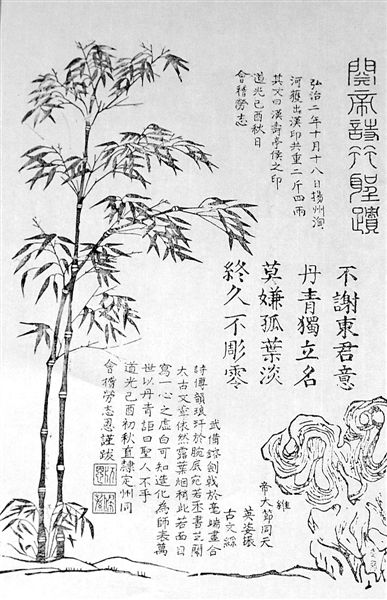 關帝詩竹聖蹟
弘治二年十月十八日揚州淘
河獲出漢印共重二斤四兩
其文曰漢壽亭侯之印
道光己酉秋日
會稽勞志
不謝東君意
丹青獨立名
莫嫌孤葉淡
終久不彫零
維
帝大節同天
英姿振
古文綜
武備鎔劍戟於毫端畫合
詩傳韻琅玕於腕底宛若禾書芝
太古文章依然露葉烟梢此若面目
寫一心之虛白可知造化為師表萬
世以丹青詎曰聖人不手
道光己酉初秋直隸定州同
會稽勞志忍謹跋